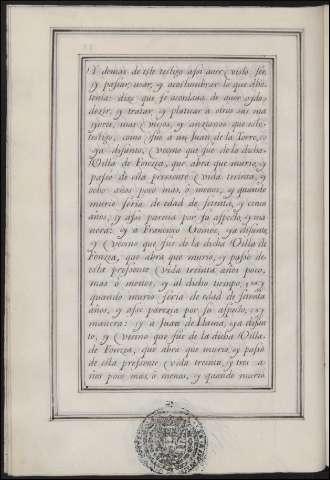 Y demas de este testigo assi aver visto ser,
y passar, usar, y acostumbrar lo que dho
tenia: dixo que se acordava de aver oydo
dezir, y tratar, y platicar a otros sus ma
yores, mas viejos, y ancianos que este
testigo, como fue a un Juan de la Torre,
ya difunto, Vecino que fue de la dicha
Villa de Fonzea, que abra que murio, y
passo de esta pressente Vida treinta, y
ocho años poco mas, o menos, y quando
murio seria de edad de setenta, y cinco
años, y assi parecia por su aspecto, y ma
nera: y a Francisco ya difunto,
y Vecino que fue de la dicha Villa de
Fonzea, que abra que murio, y passó de
esta pressente Vida treinta años poco,
mas ó menos, y al dicho tiempo, y
quando murio seria de edad de setenta
años, y assi parezia por su aspecto, y
manera: y a Juan de Llama, ya difun
to, y Vecino que fue de la dicha Villa
de Fonzea, que abra que murio, y passó
de esta pressente Vida treinta, y tres a
ños poco mas, ó menos, y quando murio